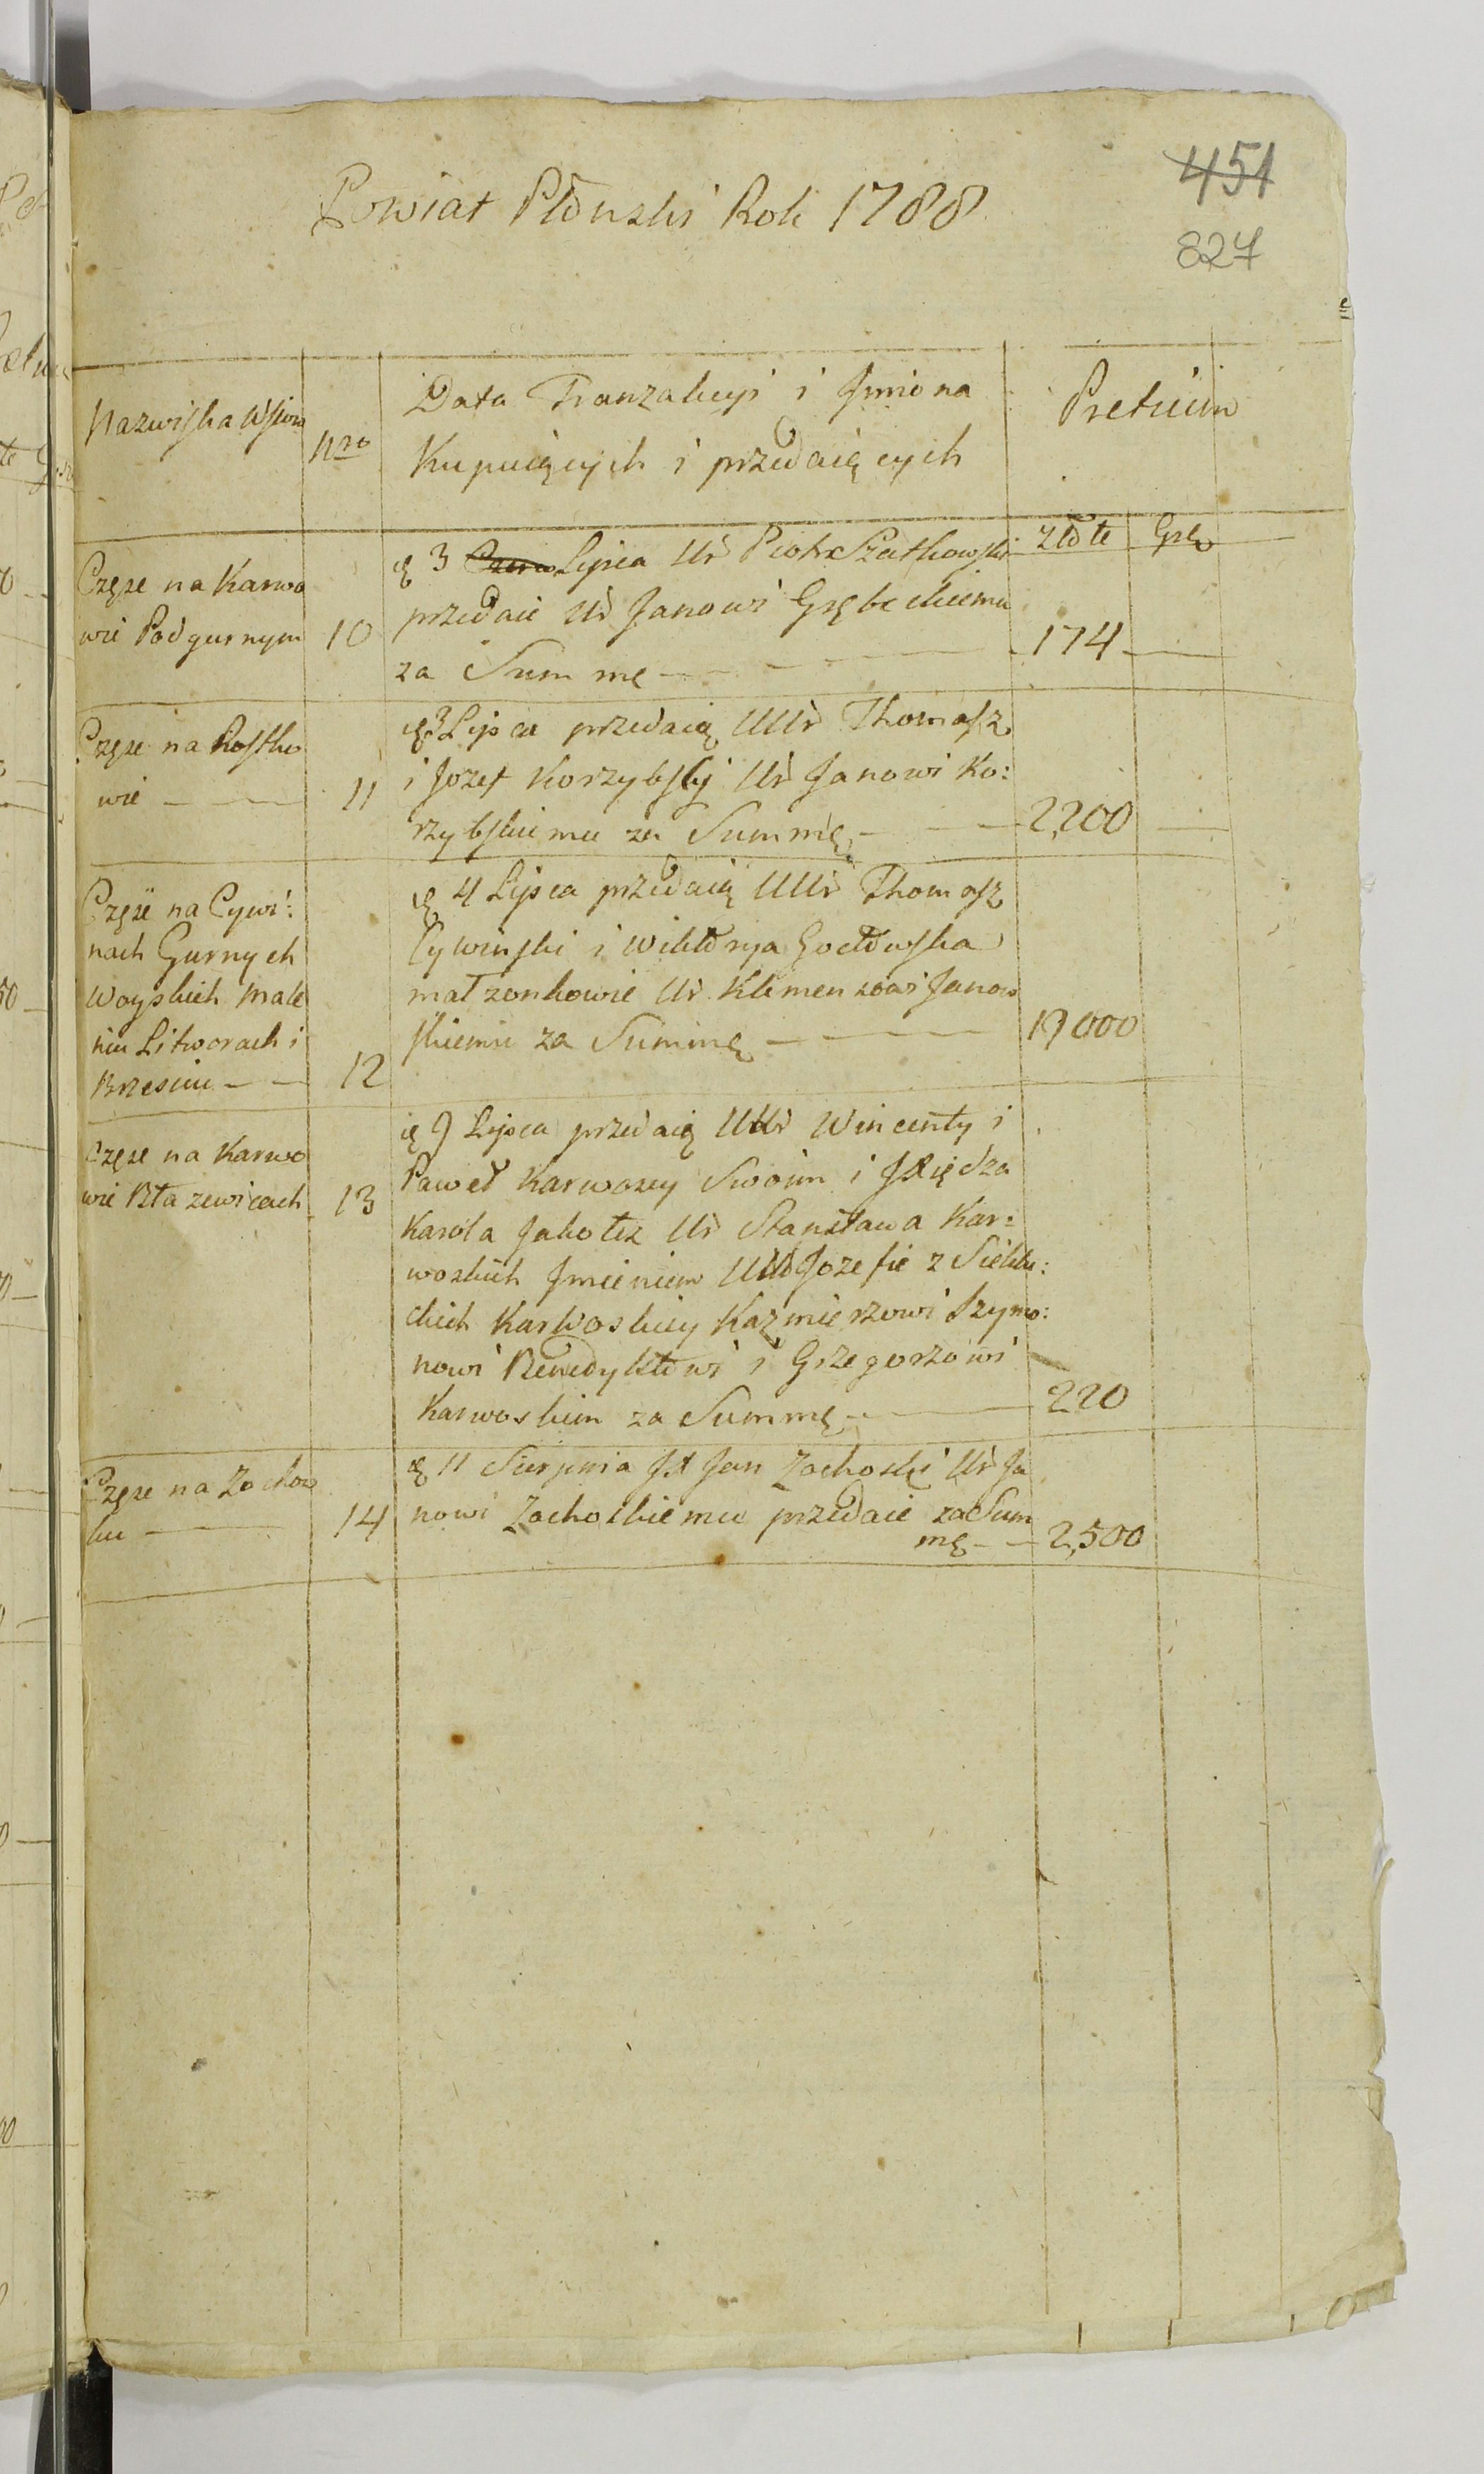 451
Powiat Płónski Rok 1788
827
Nazwiska Wsiow
Nro
Data Tranzakcyi i Jmiona
Kupuiących i przedaiących
Pretium
Złote
Grz
Częsc na Karwo
wie Podgurnym
10
3 Lipca Ur Piotr Szatkowski
przedaie Ur Janowi Grębeckiemu
za Summę
174
Częsc na Rostko
wie
11
3 Lipca przedaią UUr Thomasz
i Jozef Korzybscy Ur Janowi Ko:
rzybskiemu za Summę
2,200
Częsc na Cywi:
nach Gurnych
Woyskich Male
niu Litworach i
Brzesciu
12
4 Lipca przedaią UUr Thomasz
Cywinski i Wiktorya Gocłowska
małzonkowie Ur Klemensowi Janow
skiemu za Summę
19000
Częsc na Karwo
wie Błazewicach
13
9 Lipca przedaią UUr Wincenty i
Paweł Karwoscy Swoim i JXiędza
Karola Jakotez Ur Stanisława Kar:
woskich Jmieniem UUr Jozefie z Sieklu:
ckich Karwoskiey Kaźmierzowi Szymo:
nowi Benedyktowi i Grzegorzowi
Karwoskim za Summę
220
Częsc na Zochow
ku
14
11 Sierpnia JX Jan Zochoski Ur Ja
nowi Zochoskiemu przedaie za Sum
mę
2,500